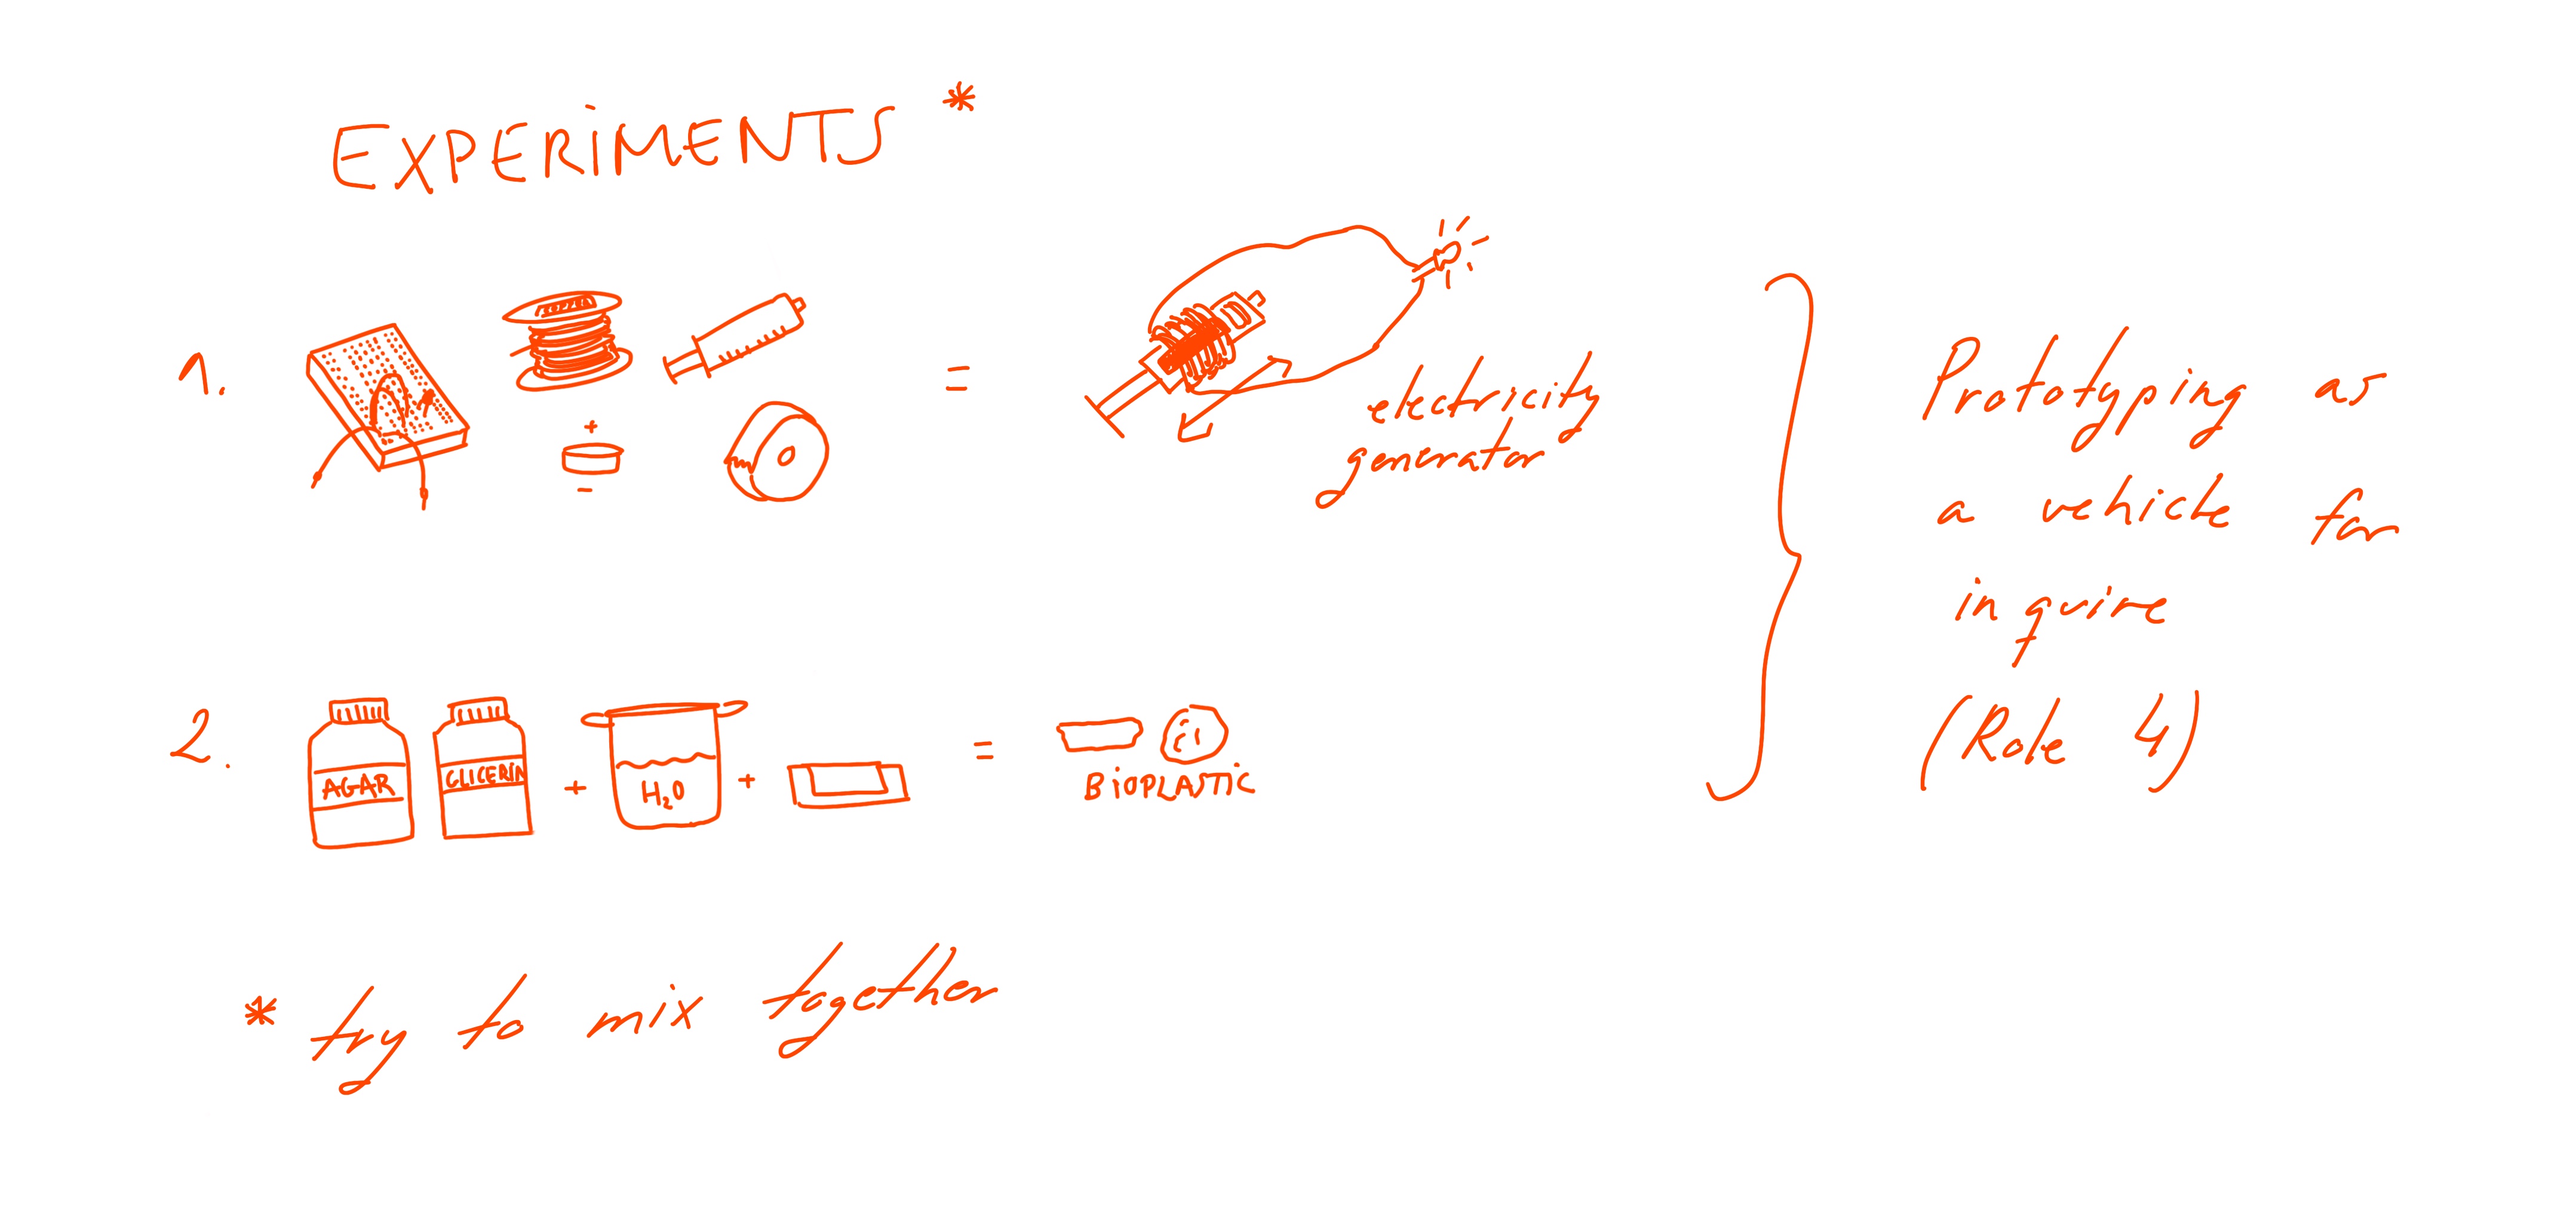 EXPERIMENTS *
1.
COPPER
+
-
=
electricity
generator
2.
AGAR
GLICERIN
+
H2O
+
=
BIOPLASTIC
Prototyping as
a vehicle for
inquire
(Role 4)
* try to mix together